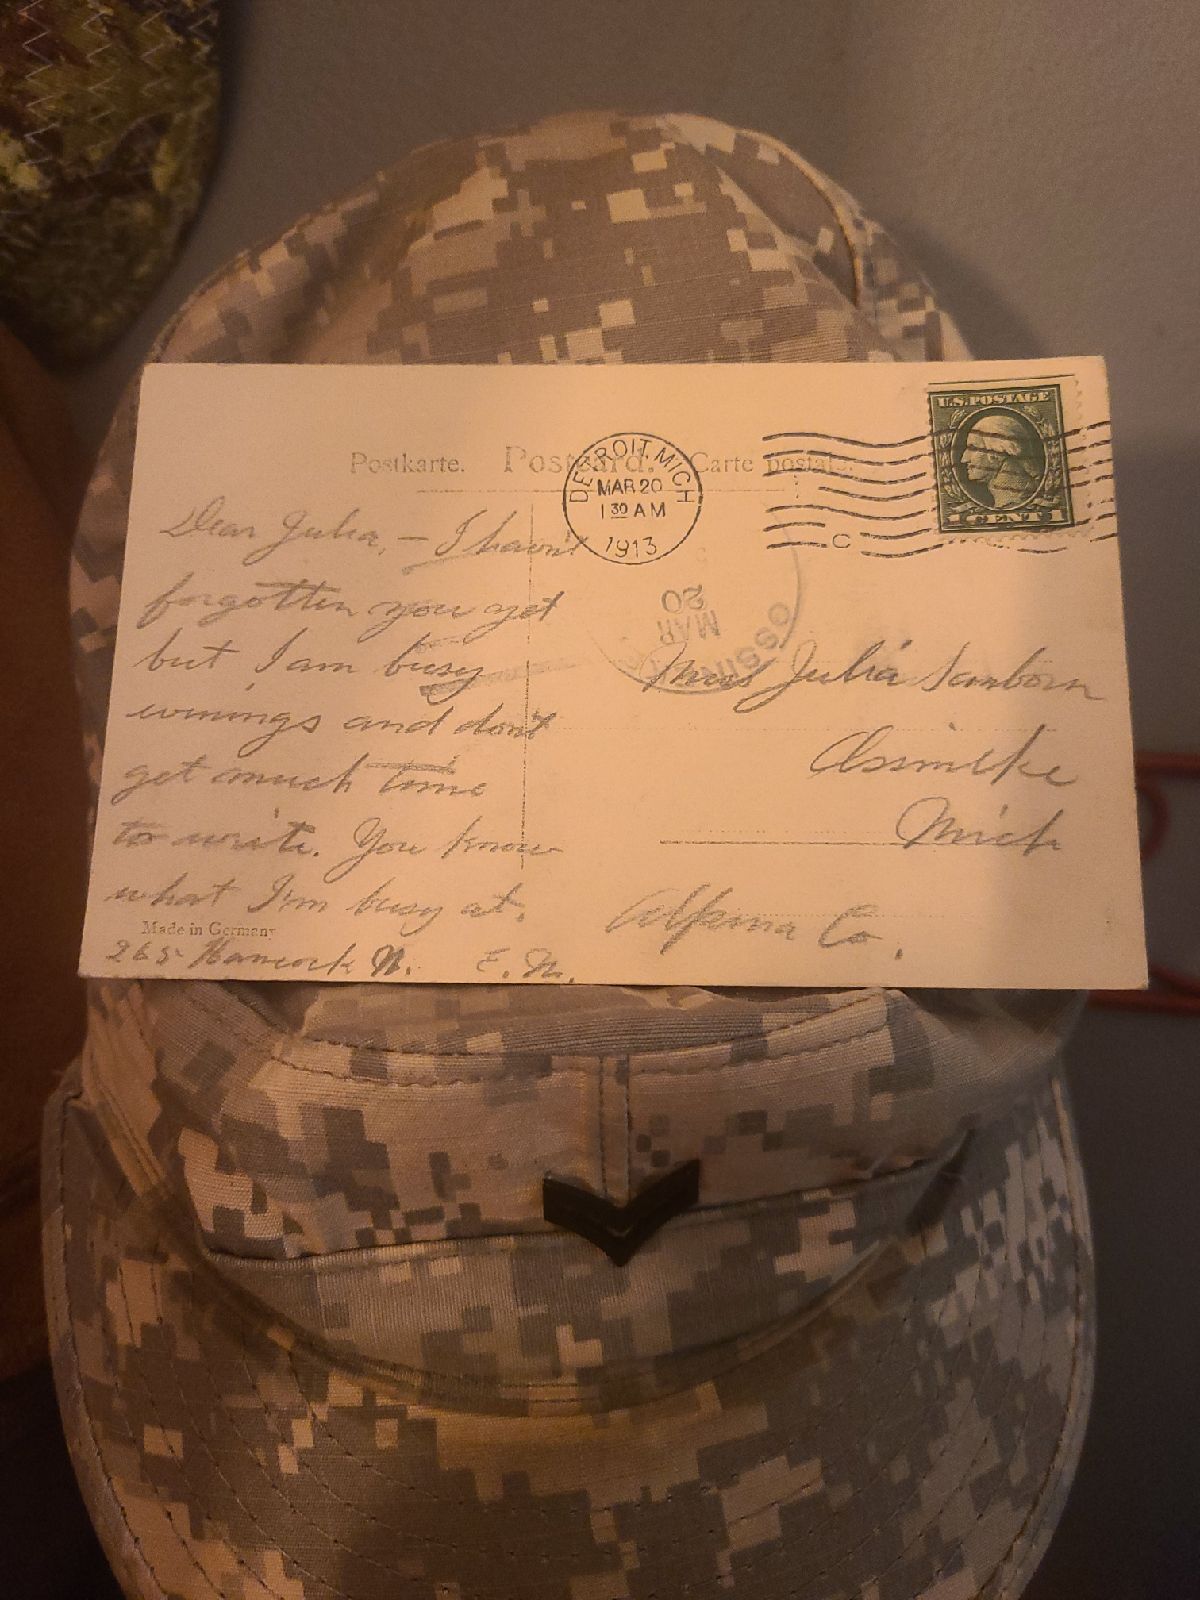 U.S. POSTAGE
1 CENT 1
Postkarte. Postcard. Carte postale.
DETROIT, MICH
MAR 20
1 30 AM
1913
C
Dear Julia, – I havn't
forgotten you yet
but I am busy
evinings and don't
get much time
to write. You know
what I'm busy at.
Made in Germany
265 Hancock W. E. M.
MAR
20
Miss Julia Sanborn
Ossineke
Mich
Alpena Co.